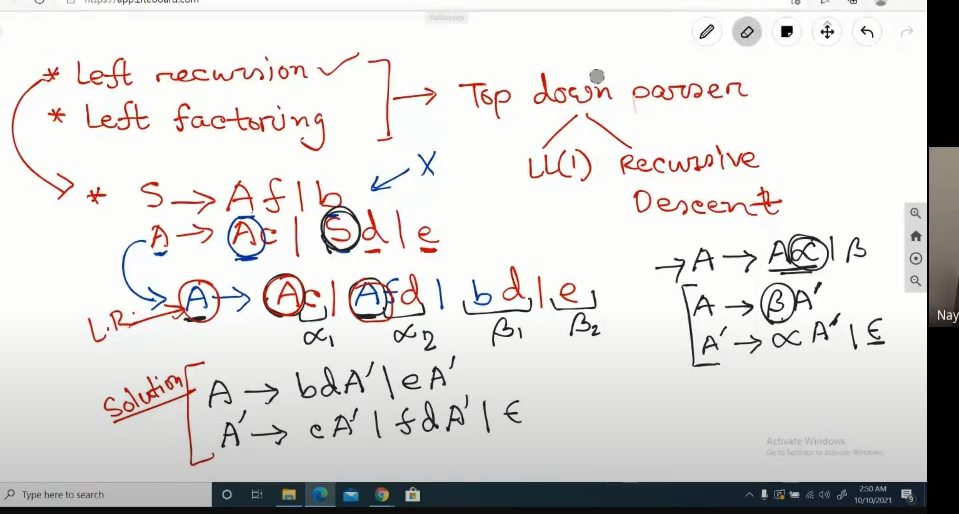 https://app.ziteboard.com
* Left recursion ✓
* Left factoring
→ Top down parser
LL(1) Recursive
Descent
* S → Af | b
X
A → Ac | Sd | e
A → Ac | Afd | bd | e
L.R.
α1 α2 β1 β2
→ A → Aα | β
A → βA'
A' → αA' | ε
Solution
A → bdA' | eA'
A' → cA' | fdA' | ε
Activate Windows
Go to Settings to activate Windows.
Nay
Type here to search
2:50 AM
10/10/2021